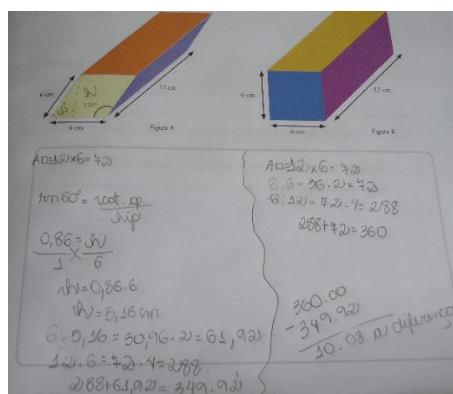 6 cm
h
60°
120°
12 cm
6 cm
Figura A
6 cm
12 cm
6 cm
Figura B
A□=12x6=72
sen60°=cat.op
hip
0,86 = h
1 6
h=0,86.6
h=5,16cm
6.5,16=30,96.2=61,92
12.6=72.4=288
288+61,92=349.92
A□=12x6=72
6.6=36.2=72
6.12=72.4=288
288+72=360
360.00
-349.92
10.08 a diferença